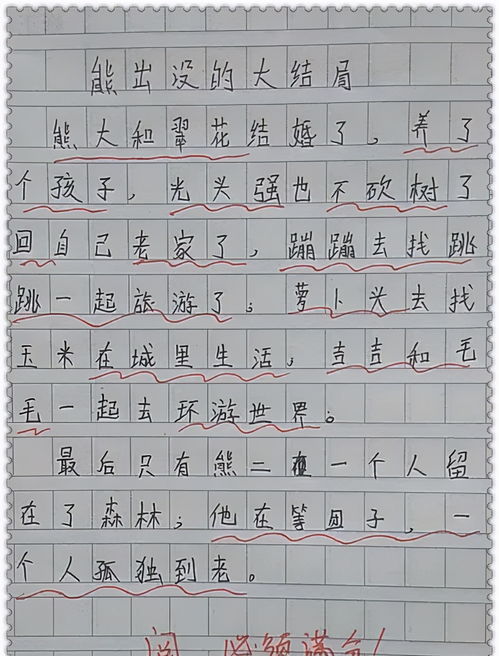 熊出没的大结局
熊大和翠花结婚了，养了
个孩子，光头强也不砍树了
回自己老家了，蹦蹦去找跳
跳一起旅游了；萝卜头去找
玉米在城里生活；吉吉和毛
毛一起去环游世界；
最后只有熊二在一个人留
在了森林；他在等团子，一
个人孤独到老。
阅 必须满分！